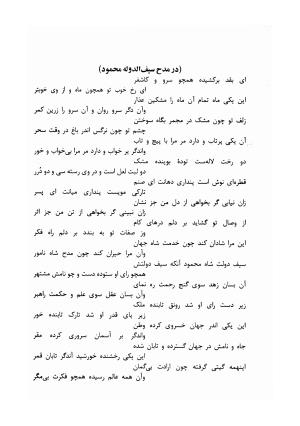 (در مدح سیف‌الدوله محمود)
ای بقد برکشیده همچو سرو و کاشغر
ای رخ خوب تو همچون ماه و از وی خوبتر
این یکی ماه تمام آن ماه را مشکین عذار
وآن دگر سرو روان و آن سرو را زرین کمر
زلف تو چون مشک در مجمر بگاه سوختن
چشم تو چون نرگس اندر باغ در وقت سحر
آن یکی پرتاب و دارد مر مرا با پیچ و تاب
واندگر پر خواب و دارد مر مرا بی‌خواب و خور
دو رخت لاله‌ست تودهٔ بوینده مشک
دو لبت لعل است و در وی رسته سی و دو دُرر
قطره‌ای نوش است پنداری دهانت ای صنم
تارکی مویست پنداری میانت ای پسر
زان نیابی گر بخواهی از دل من جز نشان
زان نبینی گر بخواهی از تن من جز اثر
از وصال تو گشاید بر دلم درهای کام
وز صفات تو به بندد بر دلم راه فکر
این مرا شادان کند چون خدمت شاه جهان
وآن مرا حیران کند چون مدح شاه نامور
سیف دولت شاه محمود آنکه سیف دولتش
همچو رای او ستوده دست و چو نامش مشتهر
آن بسان زهد سوی گنج رحمت ره نمای
وآن بسان عقل سوی علم و حکمت راهبر
زیر دست رای او شد رونق تابنده ملک
زیر پای قدر او شد تارک تابنده خور
این یکی اندر جهان خسروی کرده وطن
واندگر بر آسمان سروری کرده مقر
جاه و نامش در جهان گسترده و تابان شده
این یکی رخشنده خورشید آندگر تابان قمر
اینهمه گیتی گرفته چون ارادت بی‌گمان
وآن همه عالم رسیده همچو فکرت بی‌مگر